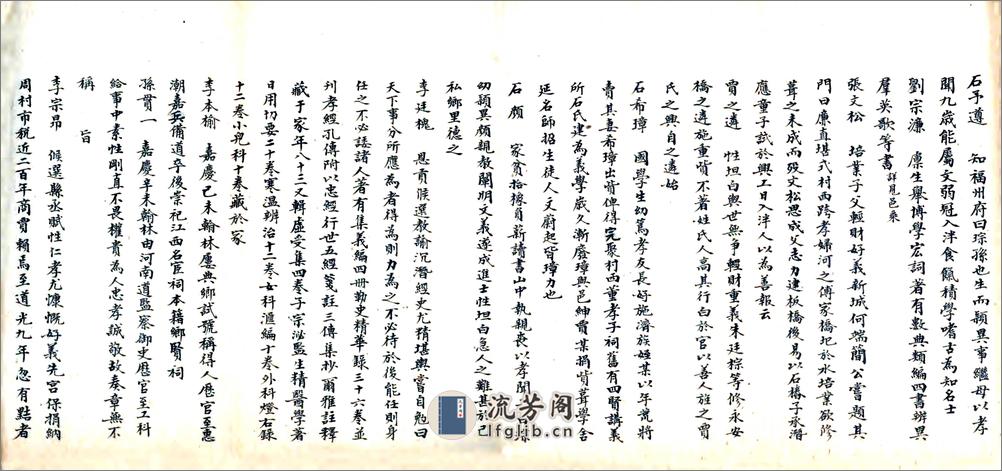 石予遵 知福州府曰琮孫也生而穎異事繼母以孝
聞九歲能屬文弱冠入泮食餼積學嗜古為知名士
劉宗濂 廩生舉博學宏詞著有數典類編四書辨異
羣英歌等書詳見邑乘
張文松 培業子父輕財好義新城何端簡公嘗題其
門曰廉直堪式村西跨孝婦河之傅家橋圮於水培業欲修
葺之未成而歿文松思成父志力建板橋後易以石橋子承潛
應童子試於興工日入泮人以為善報云
賈之遴 性坦白與世無爭輕財重義朱廷棕等修永安
橋之遴施重貲不著姓氏人人高其行白於官以善人旌之賈
氏之興自之遴始
石希璋 國學生幼篤孝友長好施濟族姪某以年荒將
賣其妻希璋出貲俾得完聚村西董孝子祠舊有四賢講義
所石氏建為義學歲久漸廢璋與邑紳賈某捐貲葺學舍
延名師招生徒人文蔚起皆璋力也
石顏 家貧拾橡負薪讀書山中執親喪以孝聞
幼穎異頗親教闡明文義遂成進士性坦白急人之難甚於己
私鄉里德之
李廷槐 恩貢候選教諭沉潛經史尤精堪輿嘗自勉曰
天下事分所應為者得為則力為之不必待於後能任則身
任之不必諉諸人著有集義編四冊勤史精華錄三十六卷並
刊孝經孔傳附以忠經行世五經箋註三傳集抄爾雅註釋
藏于家年八十三又輯虛受集四卷子宗泌監生精醫學著
日用切要二十卷寒溫辨治十二卷女科滙編十卷外科燈右錄
十二卷小兒科十卷藏於家
李本榆 嘉慶己未翰林屢典鄉試號稱得人歷官至惠
潮嘉兵備道卒後崇祀江西名宦祠本籍鄉賢祠
孫貫一 嘉慶辛未翰林由河南道監察御史歷官至工科
給事中素性剛直不畏權貴為人忠孝誠敬故奏章無不
稱 旨
李宗昂 候選縣丞賦性仁孝尤慷慨好義先宮保捐納
周村市稅近二百年商賈賴焉至道光九年忽有黠者
流芳閣
lfglib.cn